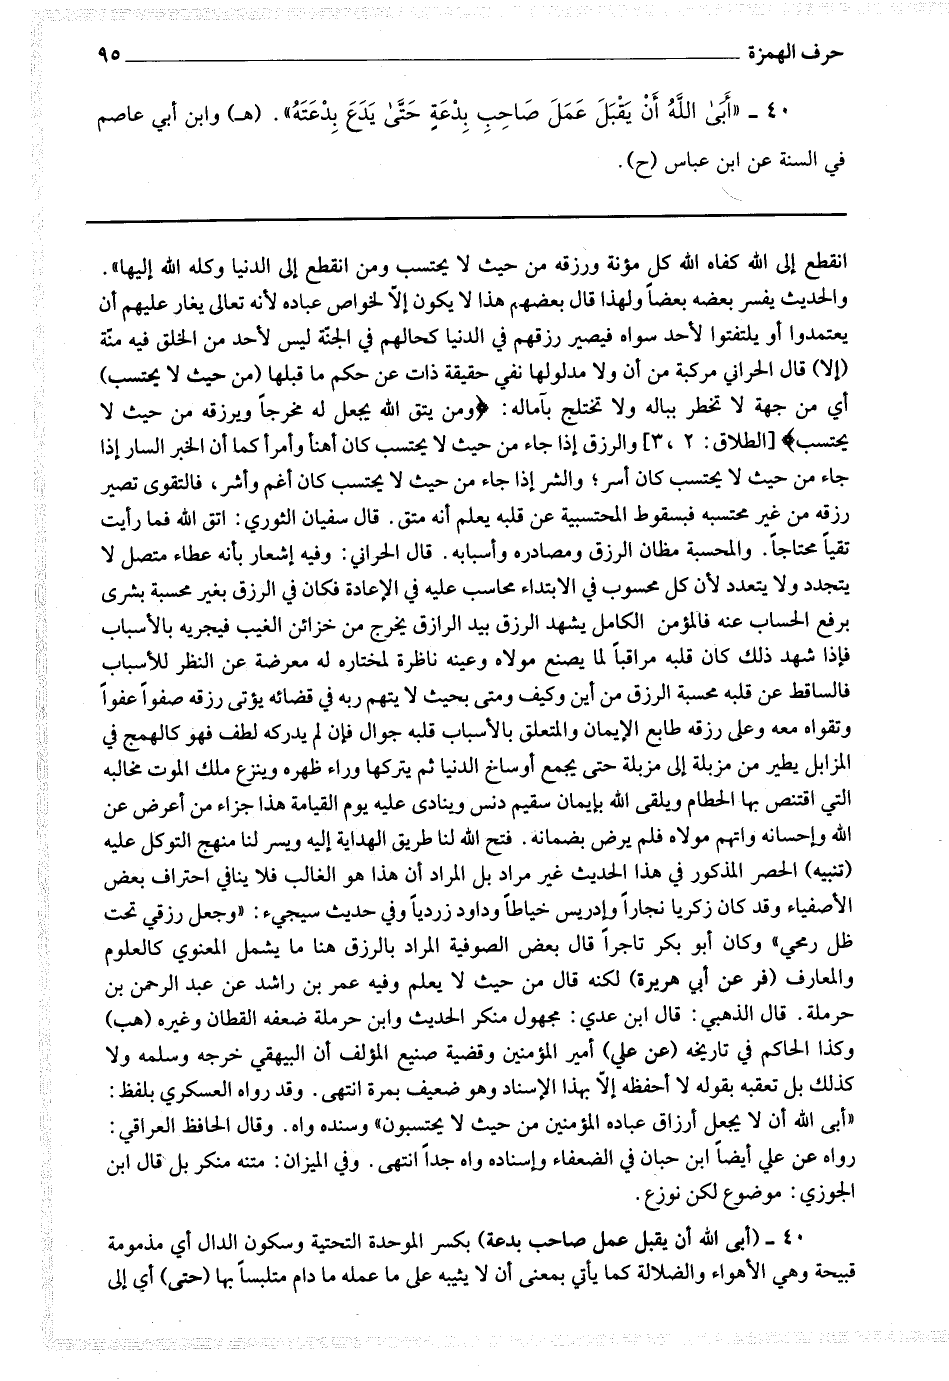 حرف الهمزة ٩٥
٤٠ ـ «أَبَىٰ اللَّهُ أَنْ يَقْبَلَ عَمَلَ صَاحِبِ بِدْعَةٍ حَتَّىٰ يَدَعَ بِدْعَتَهُ». (هـ) وابن أبي عاصم
في السنة عن ابن عباس (ح).
انقطع إلى الله كفاه الله كل مؤنة ورزقه من حيث لا يحتسب ومن انقطع إلى الدنيا وكله الله إليها».
والحديث يفسر بعضه بعضاً ولهذا قال بعضهم هذا لا يكون إلاّ لخواص عباده لأنه تعالى يغار عليهم أن
يعتمدوا أو يلتفتوا لأحد سواه فيصير رزقهم في الدنيا كحالهم في الجنّة ليس لأحد من الخلق فيه منّة
(إلا) قال الحراني مركبة من أن ولا مدلولها نفي حقيقة ذات عن حكم ما قبلها (من حيث لا يحتسب)
أي من جهة لا تخطر بباله ولا تختلج بآماله: ﴿ومن يتق الله يجعل له مخرجاً ويرزقه من حيث لا
يحتسب﴾ [الطلاق: ٢ ،٣] والرزق إذا جاء من حيث لا يحتسب كان أهنأ وأمرأ كما أن الخبر السار إذا
جاء من حيث لا يحتسب كان أسر؛ والشر إذا جاء من حيث لا يحتسب كان أغم وأشر، فالتقوى تصير
رزقه من غير محتسبه فبسقوط المحتسبية عن قلبه يعلم أنه متق. قال سفيان الثوري: اتق الله فما رأيت
تقياً محتاجاً. والمحسبة مظان الرزق ومصادره وأسبابه. قال الحراني: وفيه إشعار بأنه عطاء متصل لا
يتجدد ولا يتعدد لأن كل محسوب في الابتداء محاسب عليه في الإعادة فكان في الرزق بغير محسبة بشرى
برفع الحساب عنه فالمؤمن الكامل يشهد الرزق بيد الرازق يخرج من خزائن الغيب فيجريه بالأسباب
فإذا شهد ذلك كان قلبه مراقباً لما يصنع مولاه وعينه ناظرة لمختاره له معرضة عن النظر للأسباب
فالساقط عن قلبه محسبة الرزق من أين وكيف ومتى بحيث لا يتهم ربه في قضائه يؤتى رزقه صفواً عفواً
وتقواه معه وعلى رزقه طابع الإيمان والمتعلق بالأسباب قلبه جوال فإن لم يدركه لطف فهو كالهمج في
المزابل يطير من مزبلة إلى مزبلة حتى يجمع أوساخ الدنيا ثم يتركها وراء ظهره وينزع ملك الموت مخالبه
التي اقتنص بها الحطام ويلقى الله بإيمان سقيم دنس وينادى عليه يوم القيامة هذا جزاء من أعرض عن
الله وإحسانه واتهم مولاه فلم يرض بضمانه. فتح الله لنا طريق الهداية إليه ويسر لنا منهج التوكل عليه
(تنبيه) الحصر المذكور في هذا الحديث غير مراد بل المراد أن هذا هو الغالب فلا ينافي احتراف بعض
الأصفياء وقد كان زكريا نجاراً وإدريس خياطاً وداود زردياً وفي حديث سيجيء: «وجعل رزقي تحت
ظل رمحي» وكان أبو بكر تاجراً قال بعض الصوفية المراد بالرزق هنا ما يشمل المعنوي كالعلوم
والمعارف (فر عن أبي هريرة) لكنه قال من حيث لا يعلم وفيه عمر بن راشد عن عبد الرحمن بن
حرملة. قال الذهبي: قال ابن عدي: مجهول منكر الحديث وابن حرملة ضعفه القطان وغيره (هب)
وكذا الحاكم في تاريخه (عن علي) أمير المؤمنين وقضية صنيع المؤلف أن البيهقي خرجه وسلمه ولا
كذلك بل تعقبه بقوله لا أحفظه إلاّ بهذا الإسناد وهو ضعيف بمرة انتهى. وقد رواه العسكري بلفظ:
«أبى الله أن لا يجعل أرزاق عباده المؤمنين من حيث لا يحتسبون» وسنده واه. وقال الحافظ العراقي:
رواه عن علي أيضاً ابن حبان في الضعفاء وإسناده واه جداً انتهى. وفي الميزان: متنه منكر بل قال ابن
الجوزي: موضوع لكن نوزع.
٤٠ ـ (أبى الله أن يقبل عمل صاحب بدعة) بكسر الموحدة التحتية وسكون الدال أي مذمومة
قبيحة وهي الأهواء والضلالة كما يأتي بمعنى أن لا يثيبه على ما عمله ما دام متلبساً بها (حتى) أي إلى